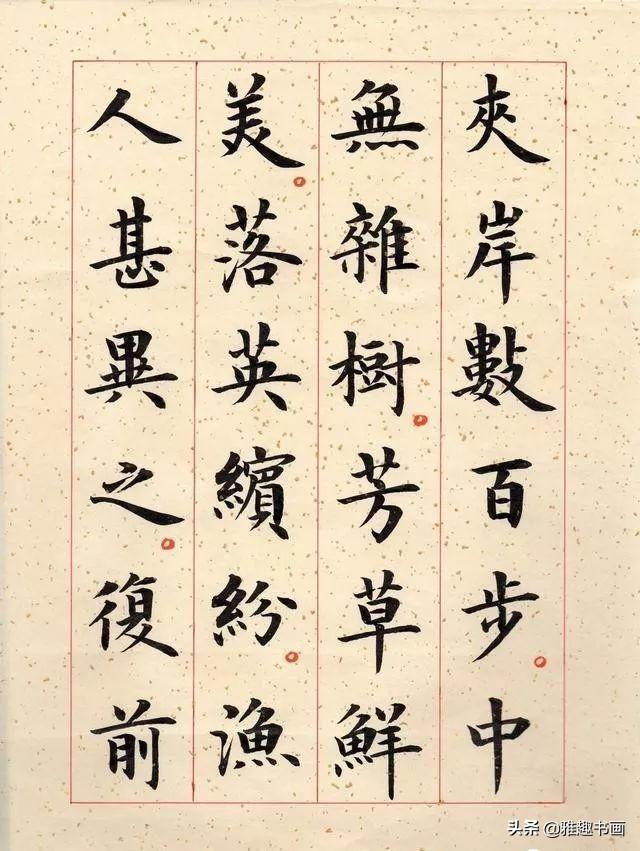 夾岸數百步中
無雜樹芳草鮮
美落英繽紛漁
人甚異之復前
头条 @雅趣书画